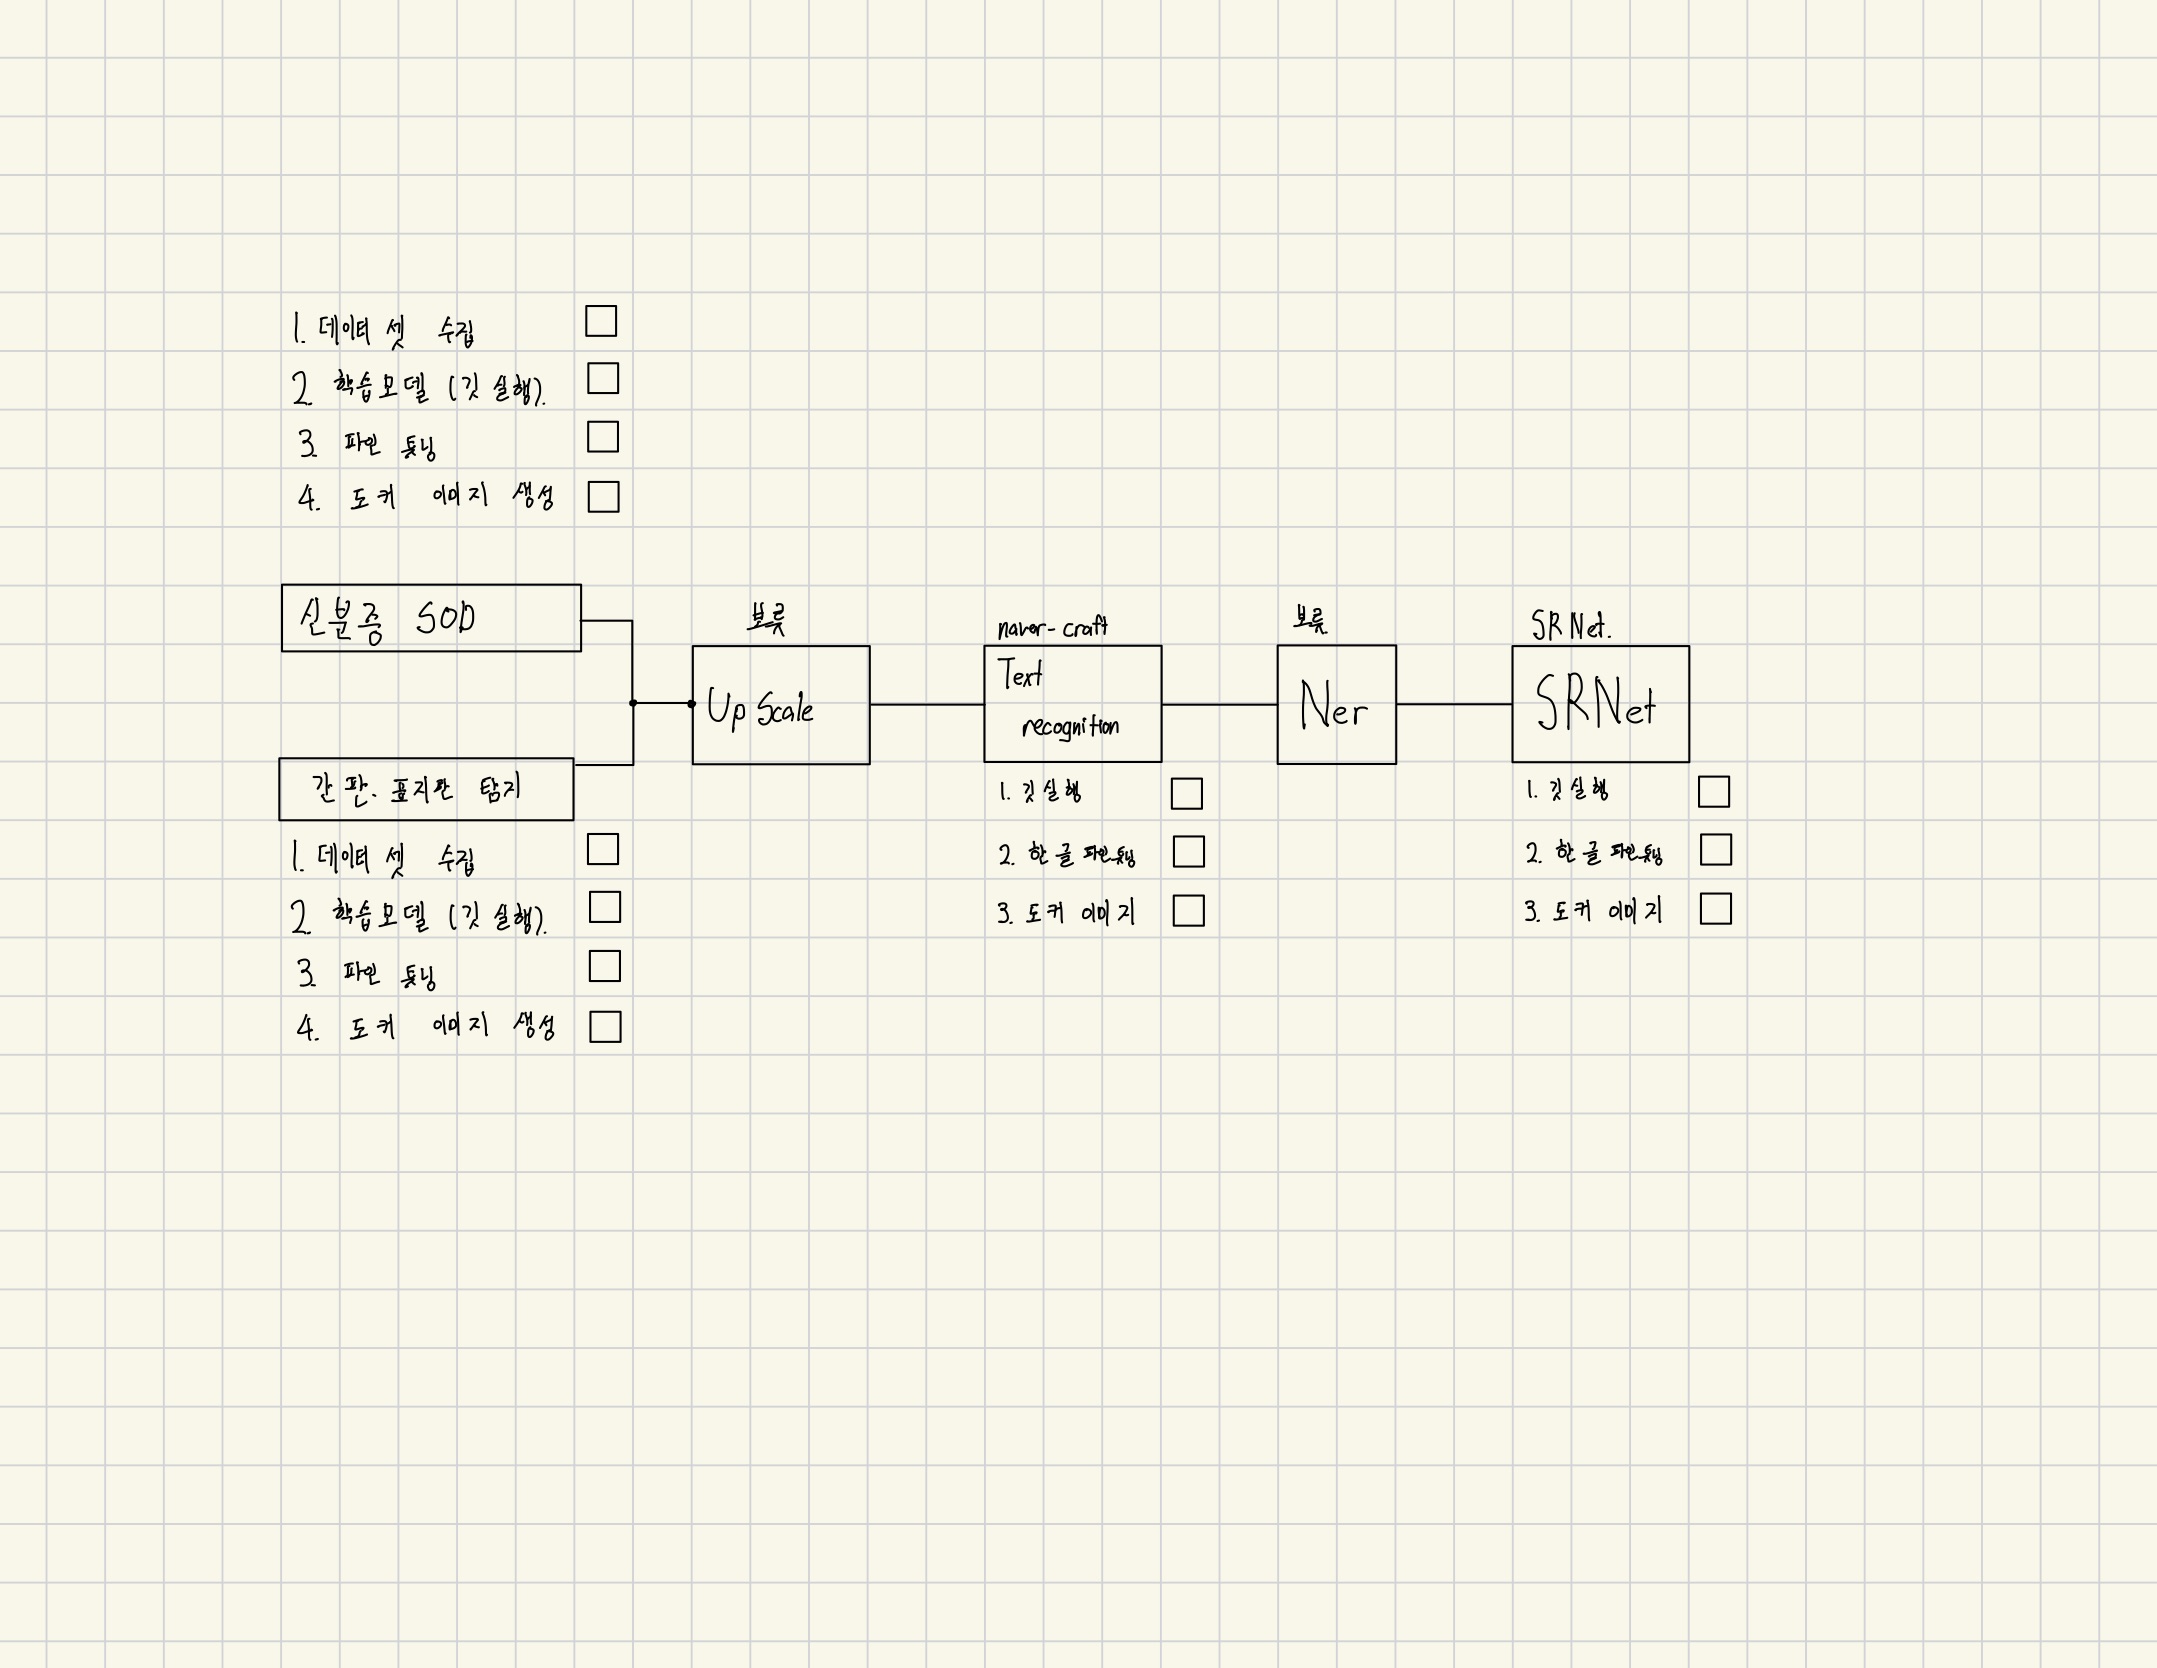 1. 데이터 셋 수집
2. 학습모델 (깃 실행).
3. 파인 튜닝
4. 도커 이미지 생성
신분증 SOD
간판. 표지판 탐지
1. 데이터 셋 수집
2. 학습모델 (깃 실행).
3. 파인 튜닝
4. 도커 이미지 생성
보류
Up Scale
naver-craft
Text
recognition
1. 깃 실행
2. 한글 파인튜닝
3. 도커 이미지
보류
Ner
SRNet.
SRNet
1. 깃 실행
2. 한글 파인튜닝
3. 도커 이미지